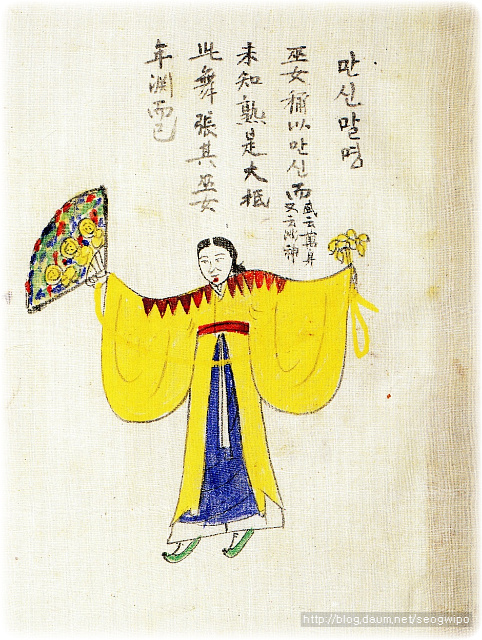 만신말명
巫女稱以만신而
云萬
又云神
未知熟是大抵
此舞張其巫女
年淵而已
http://blog.daum.net/seogwipo